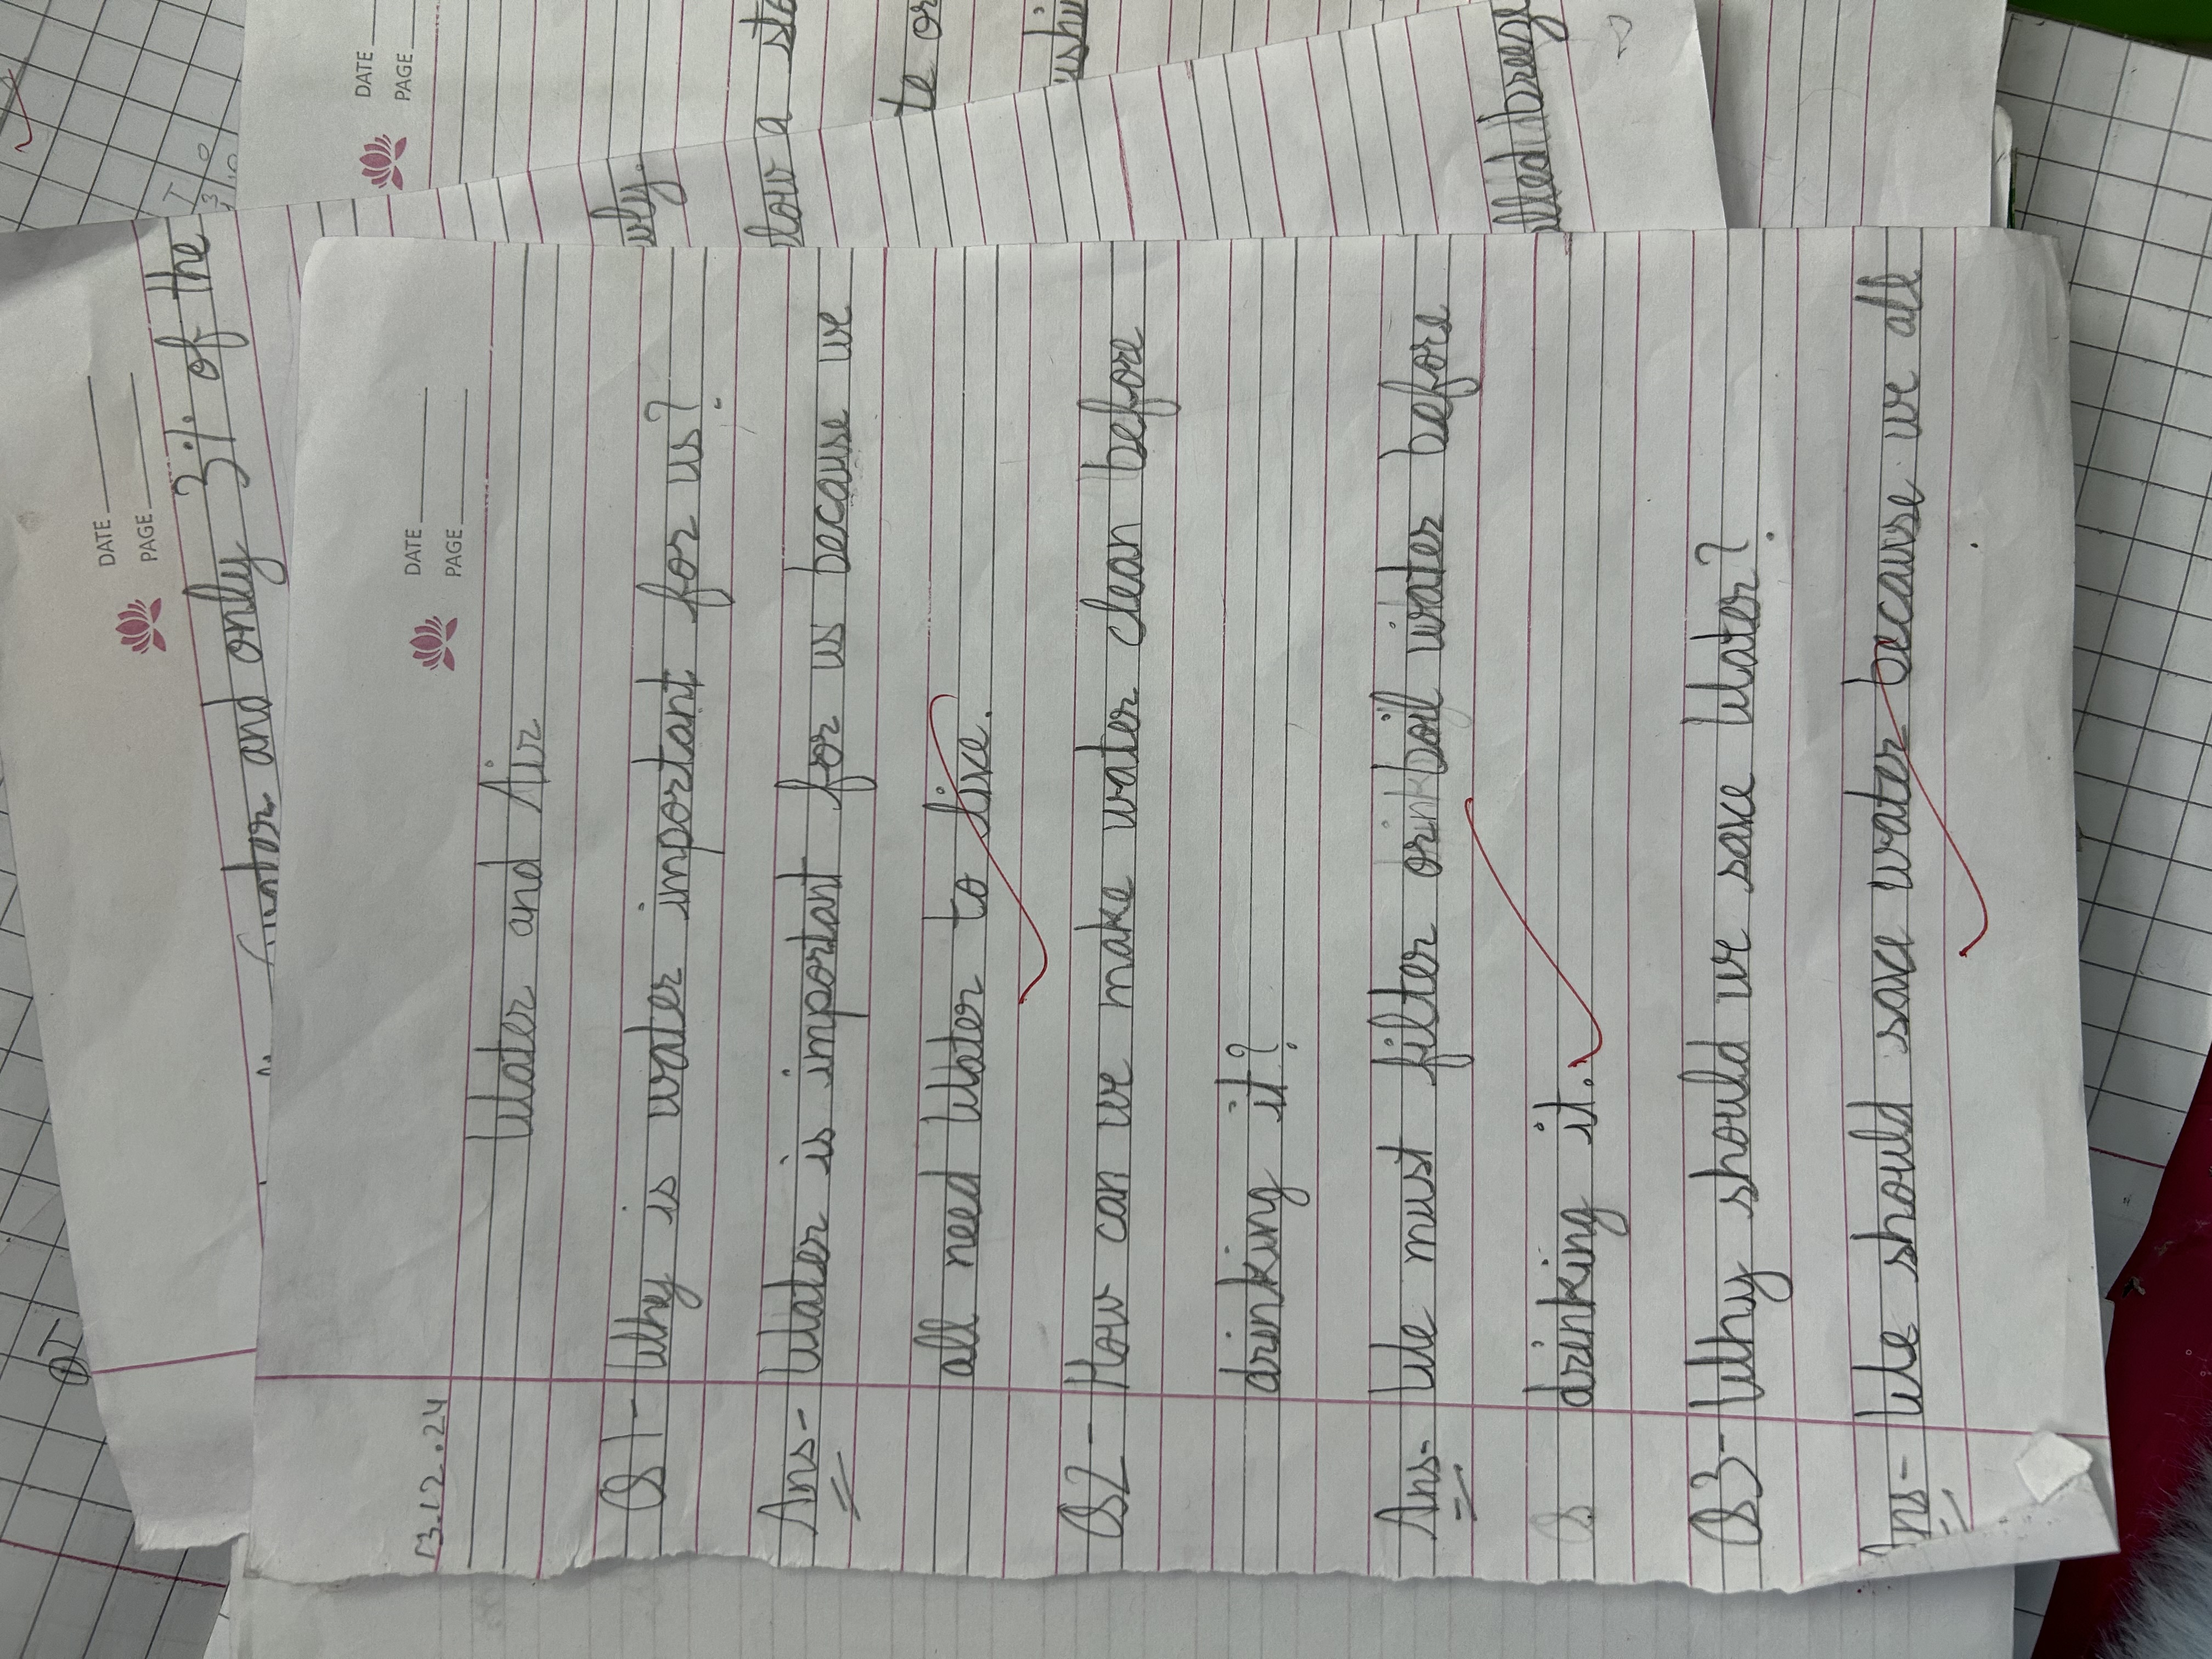 DATE
PAGE
13.12.24
Water and Air
Q1- Why is water inportant for us?
Ans- Water is important for us because we
all need Water to live.
Q2- How can we make water clean before
drinking it?
Ans- We must filter or boil water before
drinking it.
Q3- Why should we save Water?
Ans- We should save water because we all
DATE
PAGE
3% of the
and only
DATE
PAGE
a